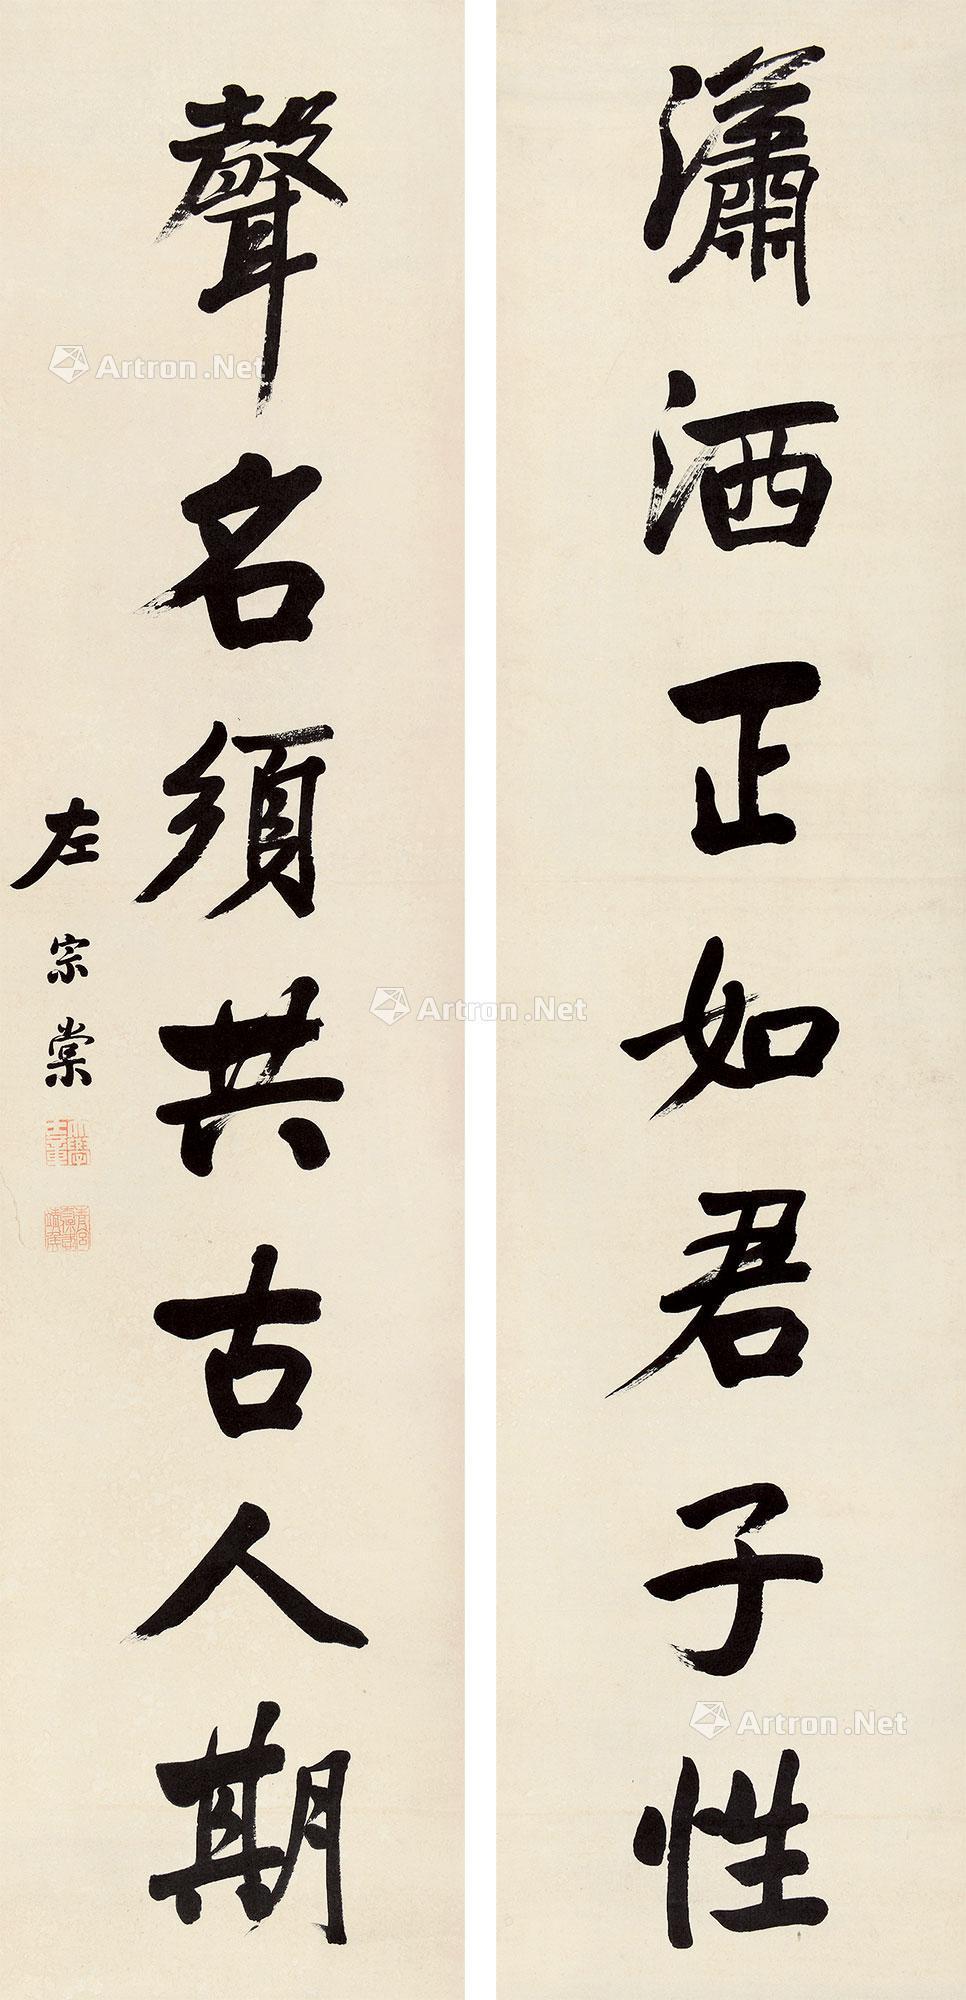 瀟洒正如君子性
聲名須共古人期
左宗棠
Artron.Net
Artron.Net
Artron.Net